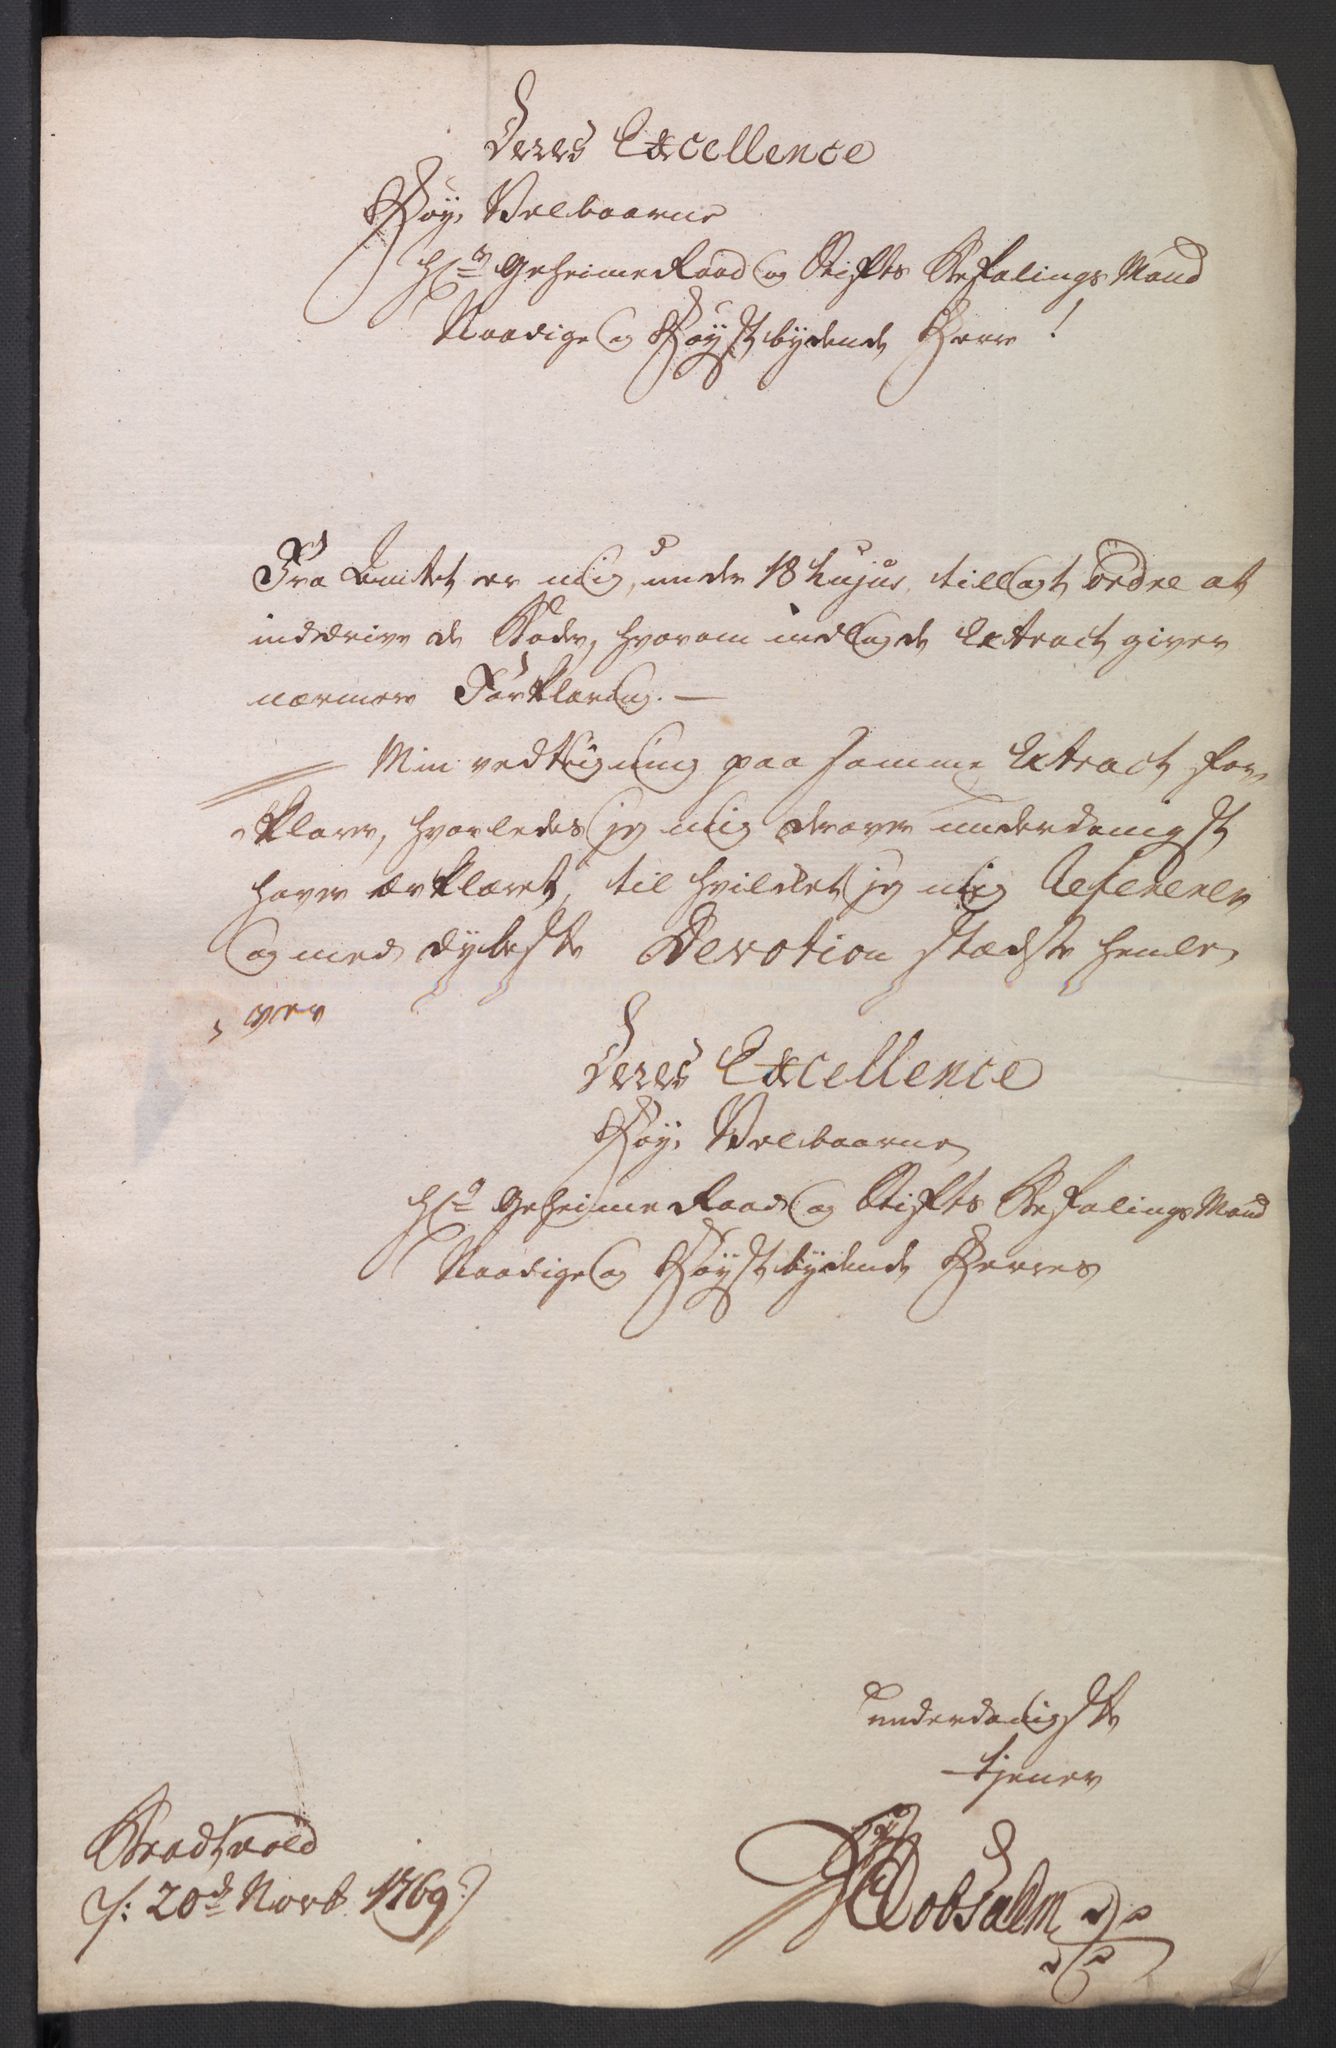 Deres Excellence
Høy, Velbaarne
Hr Geheime Raad og Stifts Befalings Mand
Naadige og Høystbydende Herre!
Fra Amtet er mig, under 18 hujus, tillagt ordre at
inddrive de Bøder, hvorom indlagde Extract giver
nærmere Forklaring. —
Min vedtegning paa samme Extract for-
klarer, hvorledes jeg mig derover underdanigst
haver ærklæret, til hvilcket jeg mig Refererer
og med dybeste Devotion stædse henle-
ver
Deres Excellence
Høy, Velbaarne
Hr Geheime Raad og Stifts Befalings Mand
Naadige og Høystbydende Herres
underdanigste
tjener
Bradtvold
d: 20de Novb. 1769